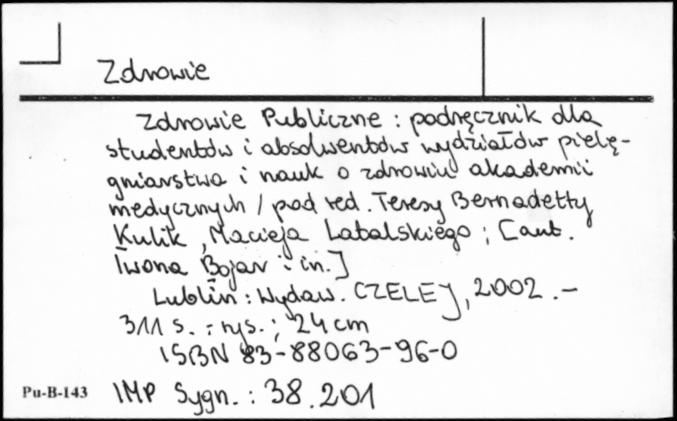 Zdrowie
Zdrowie Publiczne : podręcznik dla
studentów i absolwentów wydziałów pielę-
gniarstwa i nauk o zdrowiu akademii
medycznych / pod red. Teresy Bernadetty
Kulik, Macieja Latalskiego ; [aut.
Iwona Bojar i in.]
Lublin : Wydaw. CZELEJ, 2002. –
311 s. : rys. ; 24 cm
ISBN 83-88063-96-0
Pu-B-143 IMP Sygn. : 38.201